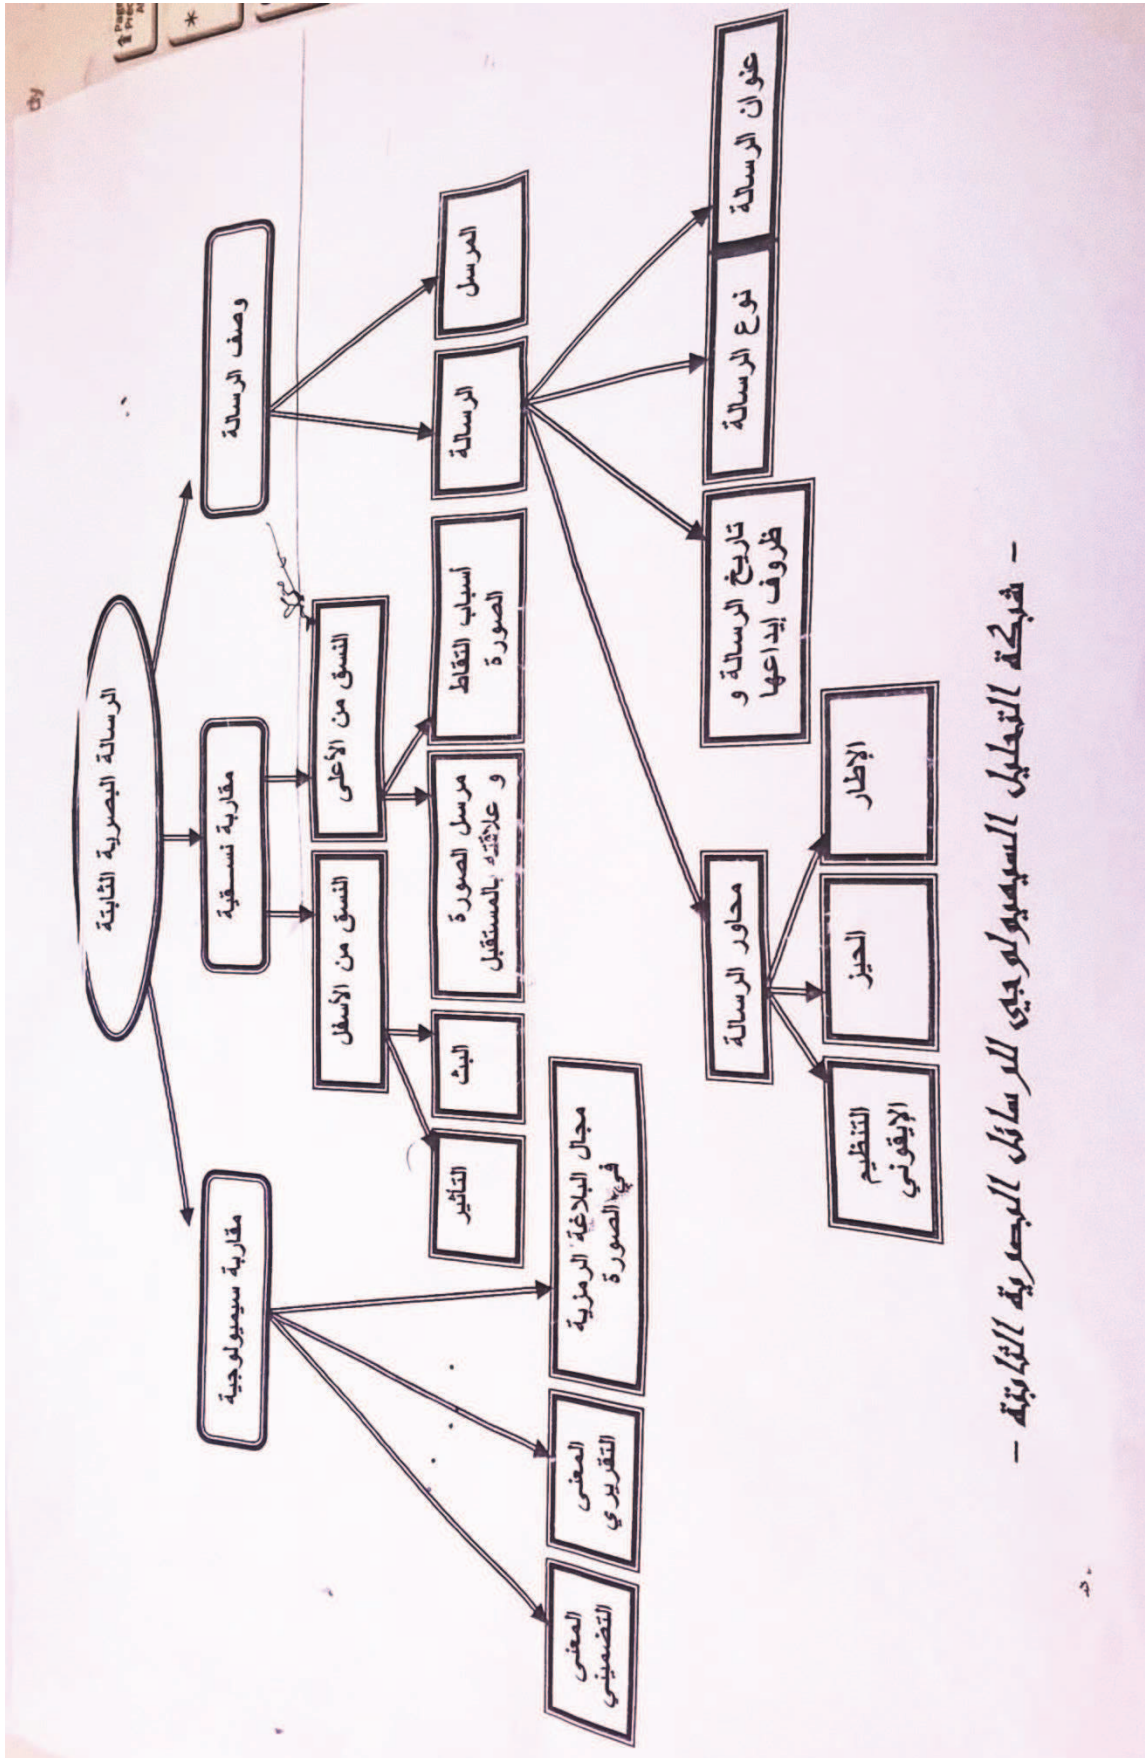 الرسالة البصرية الثابتة
وصف الرسالة
مقاربة نسقية
مقاربة سيميولوجية
النسق من الأعلى
النسق من الأسفل
المرسل
الرسالة
أسباب التقاط
الصورة
مرسل الصورة
و علاقته بالمستقبل
البث
التأثير
مجال البلاغة الرمزية
في الصورة
المعنى
التقريري
المعنى
التضميني
عنوان الرسالة
نوع الرسالة
تاريخ الرسالة و
ظروف إيداعها
محاور الرسالة
الإطار
الحيز
التنظيم
الإيقوني
- شبكة التحليل السيميولوجي للرسائل البصرية الثابتة -